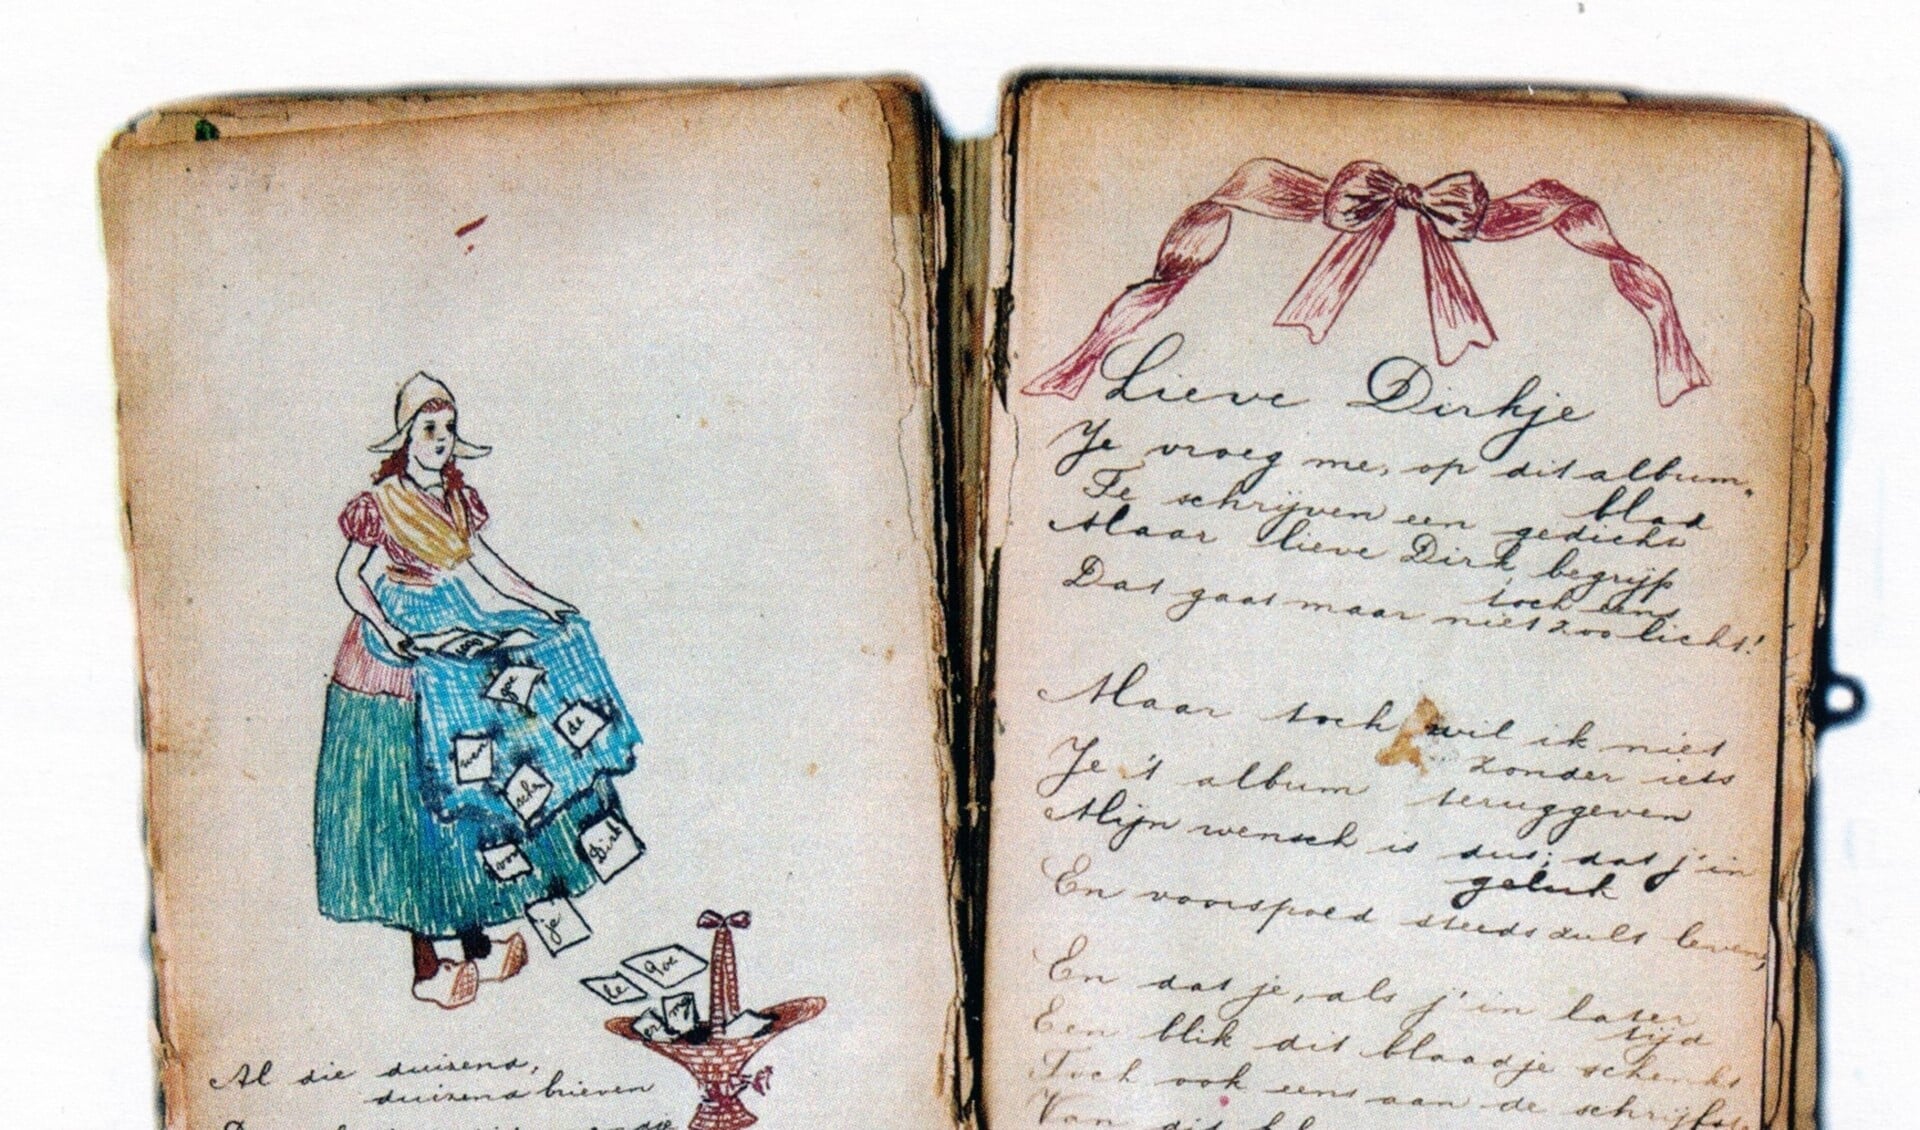 wen
goe
de
wen
sche
voor
Dirk
je
goe
le
er
mij
Al die duizend,
duizend brieven
Lieve Dirkje
Je vroeg me, op dit album-
blad
Te schrijven een gedicht
Maar lieve Dirk begrijp
toch eens
Dat gaat maar niet zoo licht!
Maar toch wil ik niet
zonder iets
Je 't album teruggeven
Mijn wensch is dus; dat j'in
geluk
En voorspoed steeds zult leven,
En dat je, als j'in later
tijd
Een blik dit blaadje schenkt
Toch ook eens aan de schrijfst.
Van dit